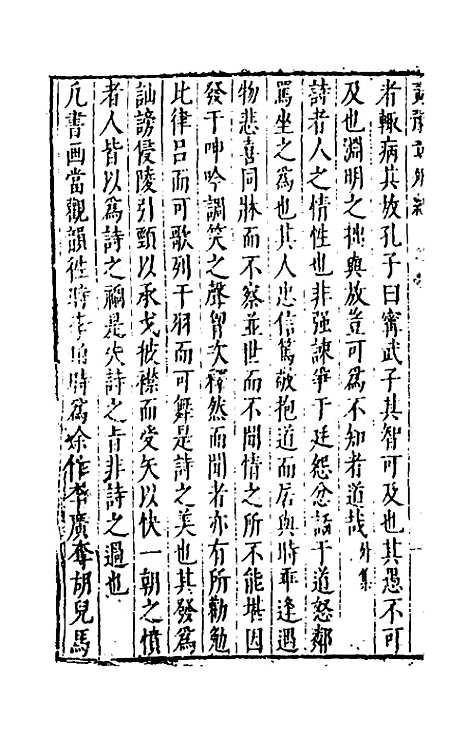 者輙病其放孔子曰甯武子其智可及也其愚不可
及也淵明之拙與放豈可為不知者道哉外集
詩者人之情性也非强諫爭于廷怨忿詬于道怒鄰
罵坐之為也其人忠信篤敬抱道而居與時乖逢遇
物悲喜同牀而不察並世而不聞情之所不能堪因
發于呻吟調笑之聲胷次釋然而聞者亦有所勸勉
比律吕而可歌列干羽而可舞是詩之美也其發為
訕謗侵陵引頸以承戈披襟而受矢以快一朝之憤
者人皆以為詩之禍是失詩之旨非詩之過也
凡書画當觀韻徃時李伯時為余作李廣奪胡兒馬